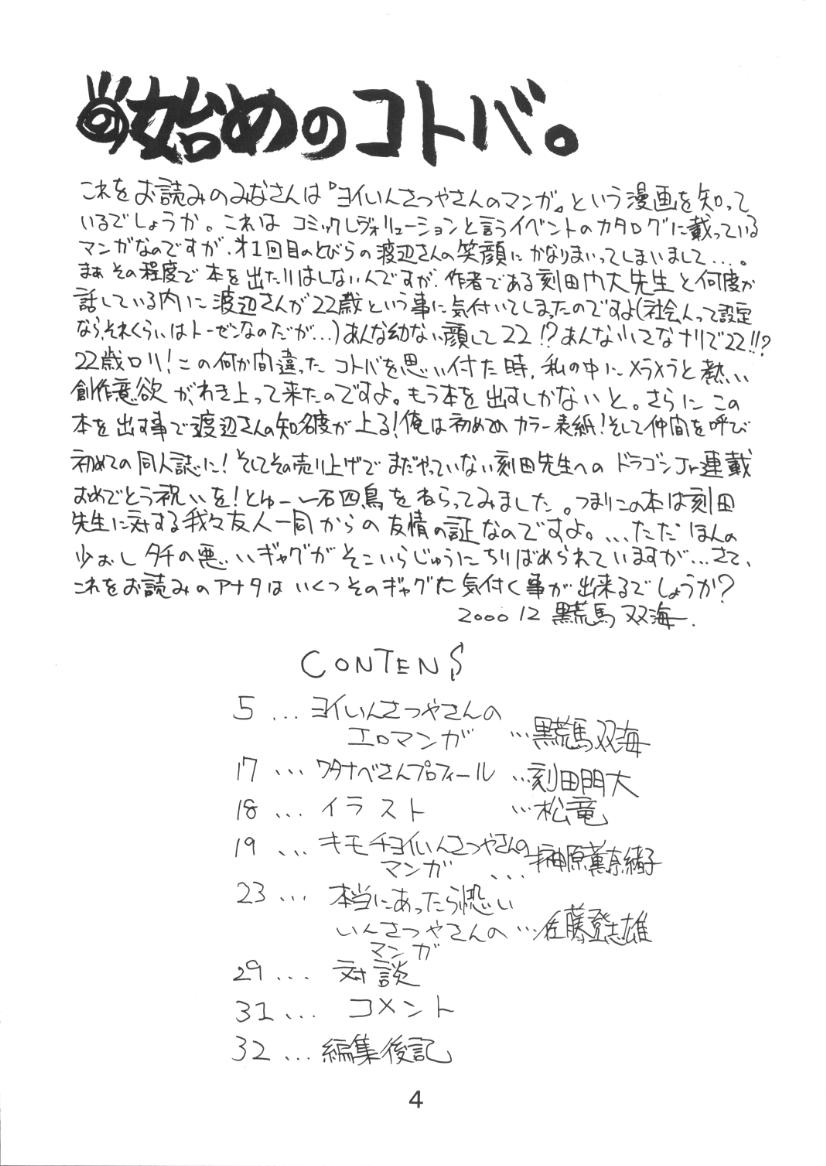 の始めのコトバ。
これをお読みのみなさんは『ヨイいんさつやさんのマンガ』という漫画を知って
いるでしょうか。これは コミックレヴォリューションと言うイベントのカタログに載っている
マンガなのですが、才1回目のとびらの渡辺さんの笑顔にかなりまいってしまいまして…。
まぁその程度で本を出したりはしないんですが、作者である刻田門大先生と何度か
話している内に渡辺さんが22歳という事に気付いてしまったのですよ(社会人って設定
なら、それくらいはトーゼンなのだが…)あんな幼ない顔して22!?あんな小さなナリで22!!?
22歳ロリ!この何か間違ったコトバを思い付た時、私の中にメラメラと熱い
創作意欲がわき上って来たのですよ。もう本を出すしかないと。さらにこの
本を出す事で渡辺さんの知名度が上る!俺は初めてのカラー表紙!そして仲間を呼び
初めての同人誌に!そしてその売り上げでまだやっていない刻田先生へのドラゴンJr連載
おめでとう祝いを!とゆー一石四鳥をねらってみました。つまりこの本は刻田
先生に対する我々友人一同からの友情の証なのですよ。…ただほんの
少おしタチの悪いギャグがそこいらじゅうにちりばめられていますが…さて、
これをお読みのアナタはいくつそのギャグに気付く事が出来るでしょうか?
2000 12 黒荒馬 双海.
CONTENS
5 ... ヨイいんさつやさんの
エロマンガ …黒荒馬双海
17 ... ワタナベさんプロフィール …刻田門大
18 ... イラスト …松竜
19 ... キモチヨイいんさつやさんの
マンガ ...榊原薫奈緒子
23 ... 本当にあったら恐い
いんさつやさんの …佐藤登志雄
マンガ
29 ... 対談
31 ... コメント
32 ... 編集後記
4